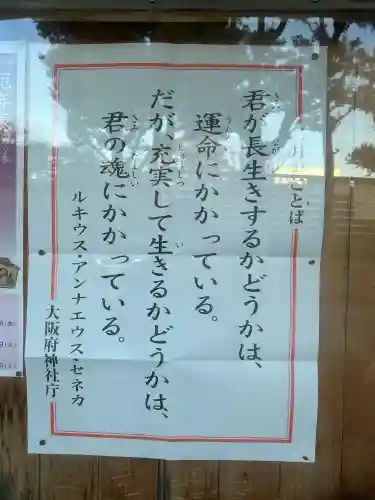 ことば
君が長生きするかどうかは、
運命にかかっている。
だが、充実して生きるかどうかは、
君の魂にかかっている。
ルキウス・アンナエウス・セネカ
大阪府神社庁